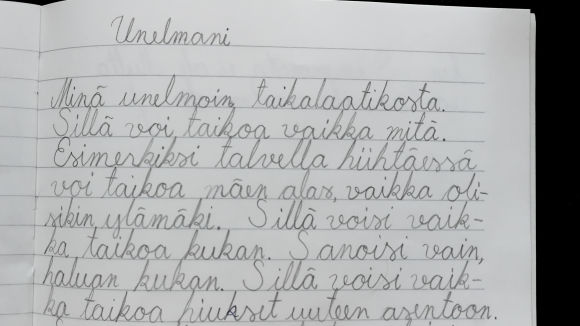 Unelmani
Minä unelmoin taikalaatikosta.
Sillä voi taikoa vaikka mitä.
Esimerkiksi talvella hiihtäessä
voi taikoa mäen alas, vaikka oli-
sikin ylämäki. Sillä voisi vaik-
ka taikoa kukan. Sanoisi vain,
haluan kukan. Sillä voisi vaik-
ka taikoa hiukset uuteen asentoon.